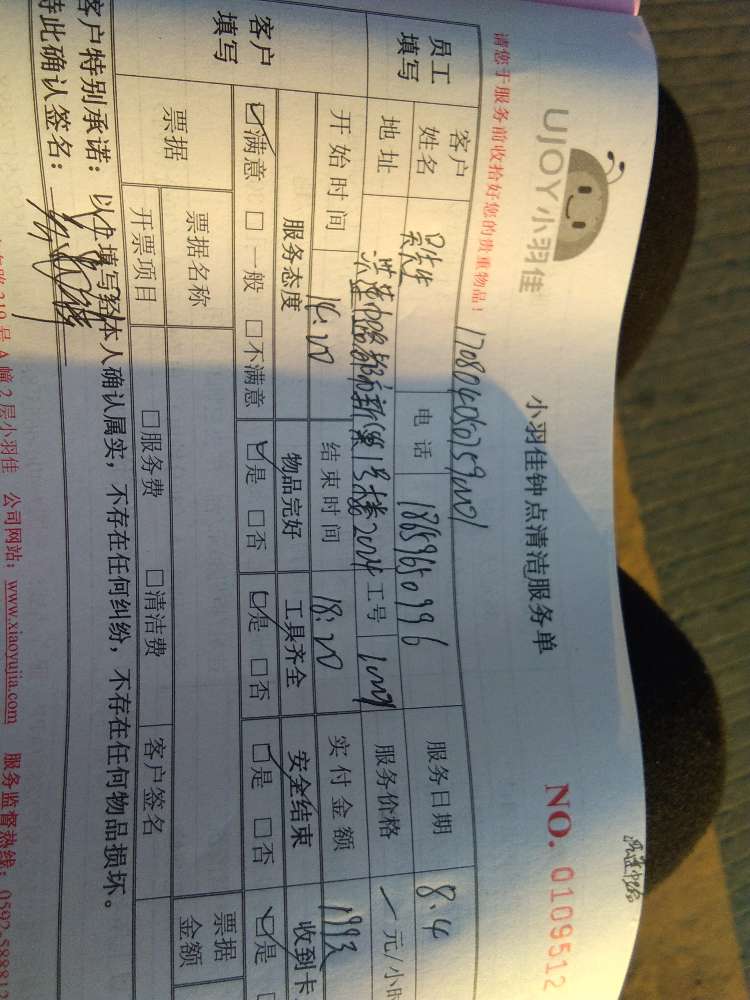 UJOY小羽佳
小羽佳钟点清洁服务单
NO. 0109512
请您于服务前收拾好您的贵重物品！
员工填写
客户姓名
吴先生
电话
18659650996
服务日期
8.4
地址
工号
服务价格
元/小时
开始时间
14:20
结束时间
18:20
实付金额
客户填写
服务态度
物品完好
工具齐全
安全结束
收到卡
☑满意 □一般 □不满意
☑是 □否
☑是 □否
☑是 □否
☑是
票据
票据名称
票据金额
开票项目
□服务费 □清洁费
客户签名
客户特别承诺：以上填写经本人确认属实，不存在任何纠纷，不存在任何物品损坏。
特此确认签名：
219号A幢2层小羽佳 公司网站：www.xiaoyujia.com 服务监督热线：0592-588812